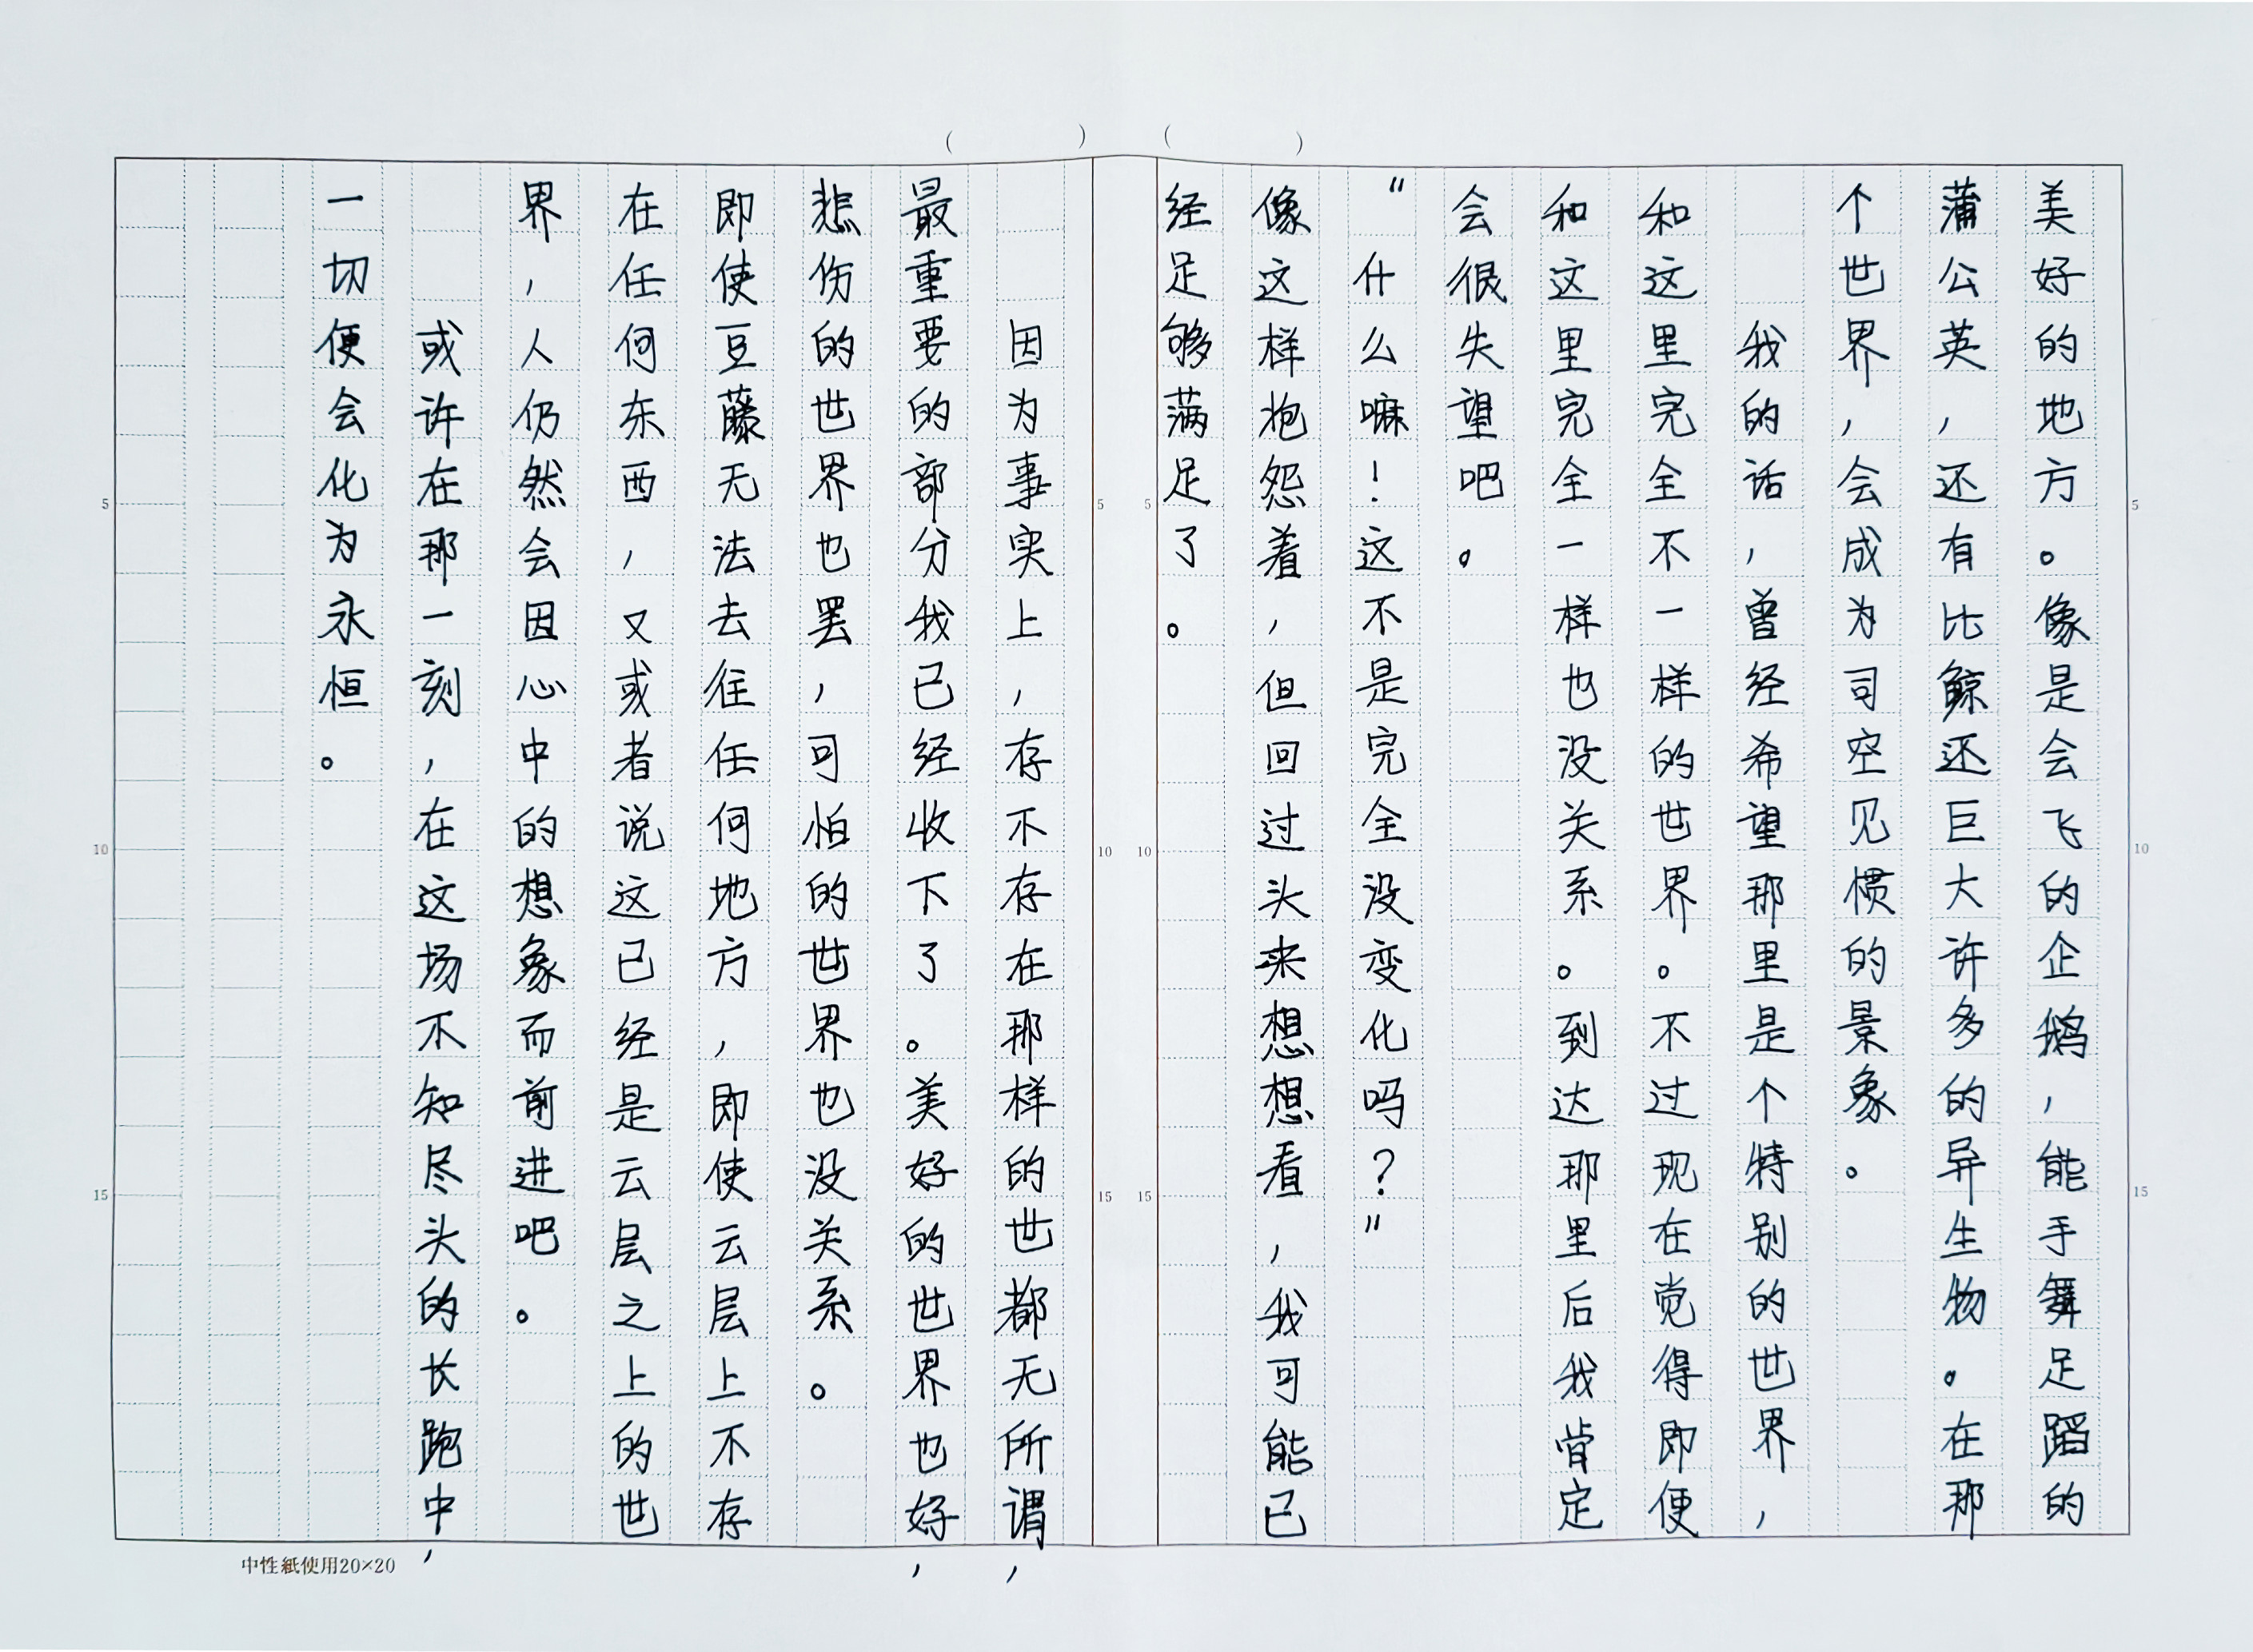 美好的地方。像是会飞的企鹅，能手舞足蹈的
蒲公英，还有比鲸还巨大许多的异生物。在那
个世界，会成为司空见惯的景象。
我的话，曾经希望那里是个特别的世界，
和这里完全不一样的世界。不过现在觉得即便
和这里完全一样也没关系。到达那里后我肯定
会很失望吧。
“什么嘛！这不是完全没变化吗？”
像这样抱怨着，但回过头来想想看，我可能已
经足够满足了。
因为事实上，存不存在那样的世都无所谓，
最重要的部分我已经收下了。美好的世界也好，
悲伤的世界也罢，可怕的世界也没关系。
即使豆藤无法去往任何地方，即使云层上不存
在任何东西，又或者说这已经是云层之上的世
界，人仍然会因心中的想象而前进吧。
或许在那一刻，在这场不知尽头的长跑中，
一切便会化为永恒。
( ) ( )
5 5 5 5
10 10 10 10
15 15 15 15
中性紙使用20×20